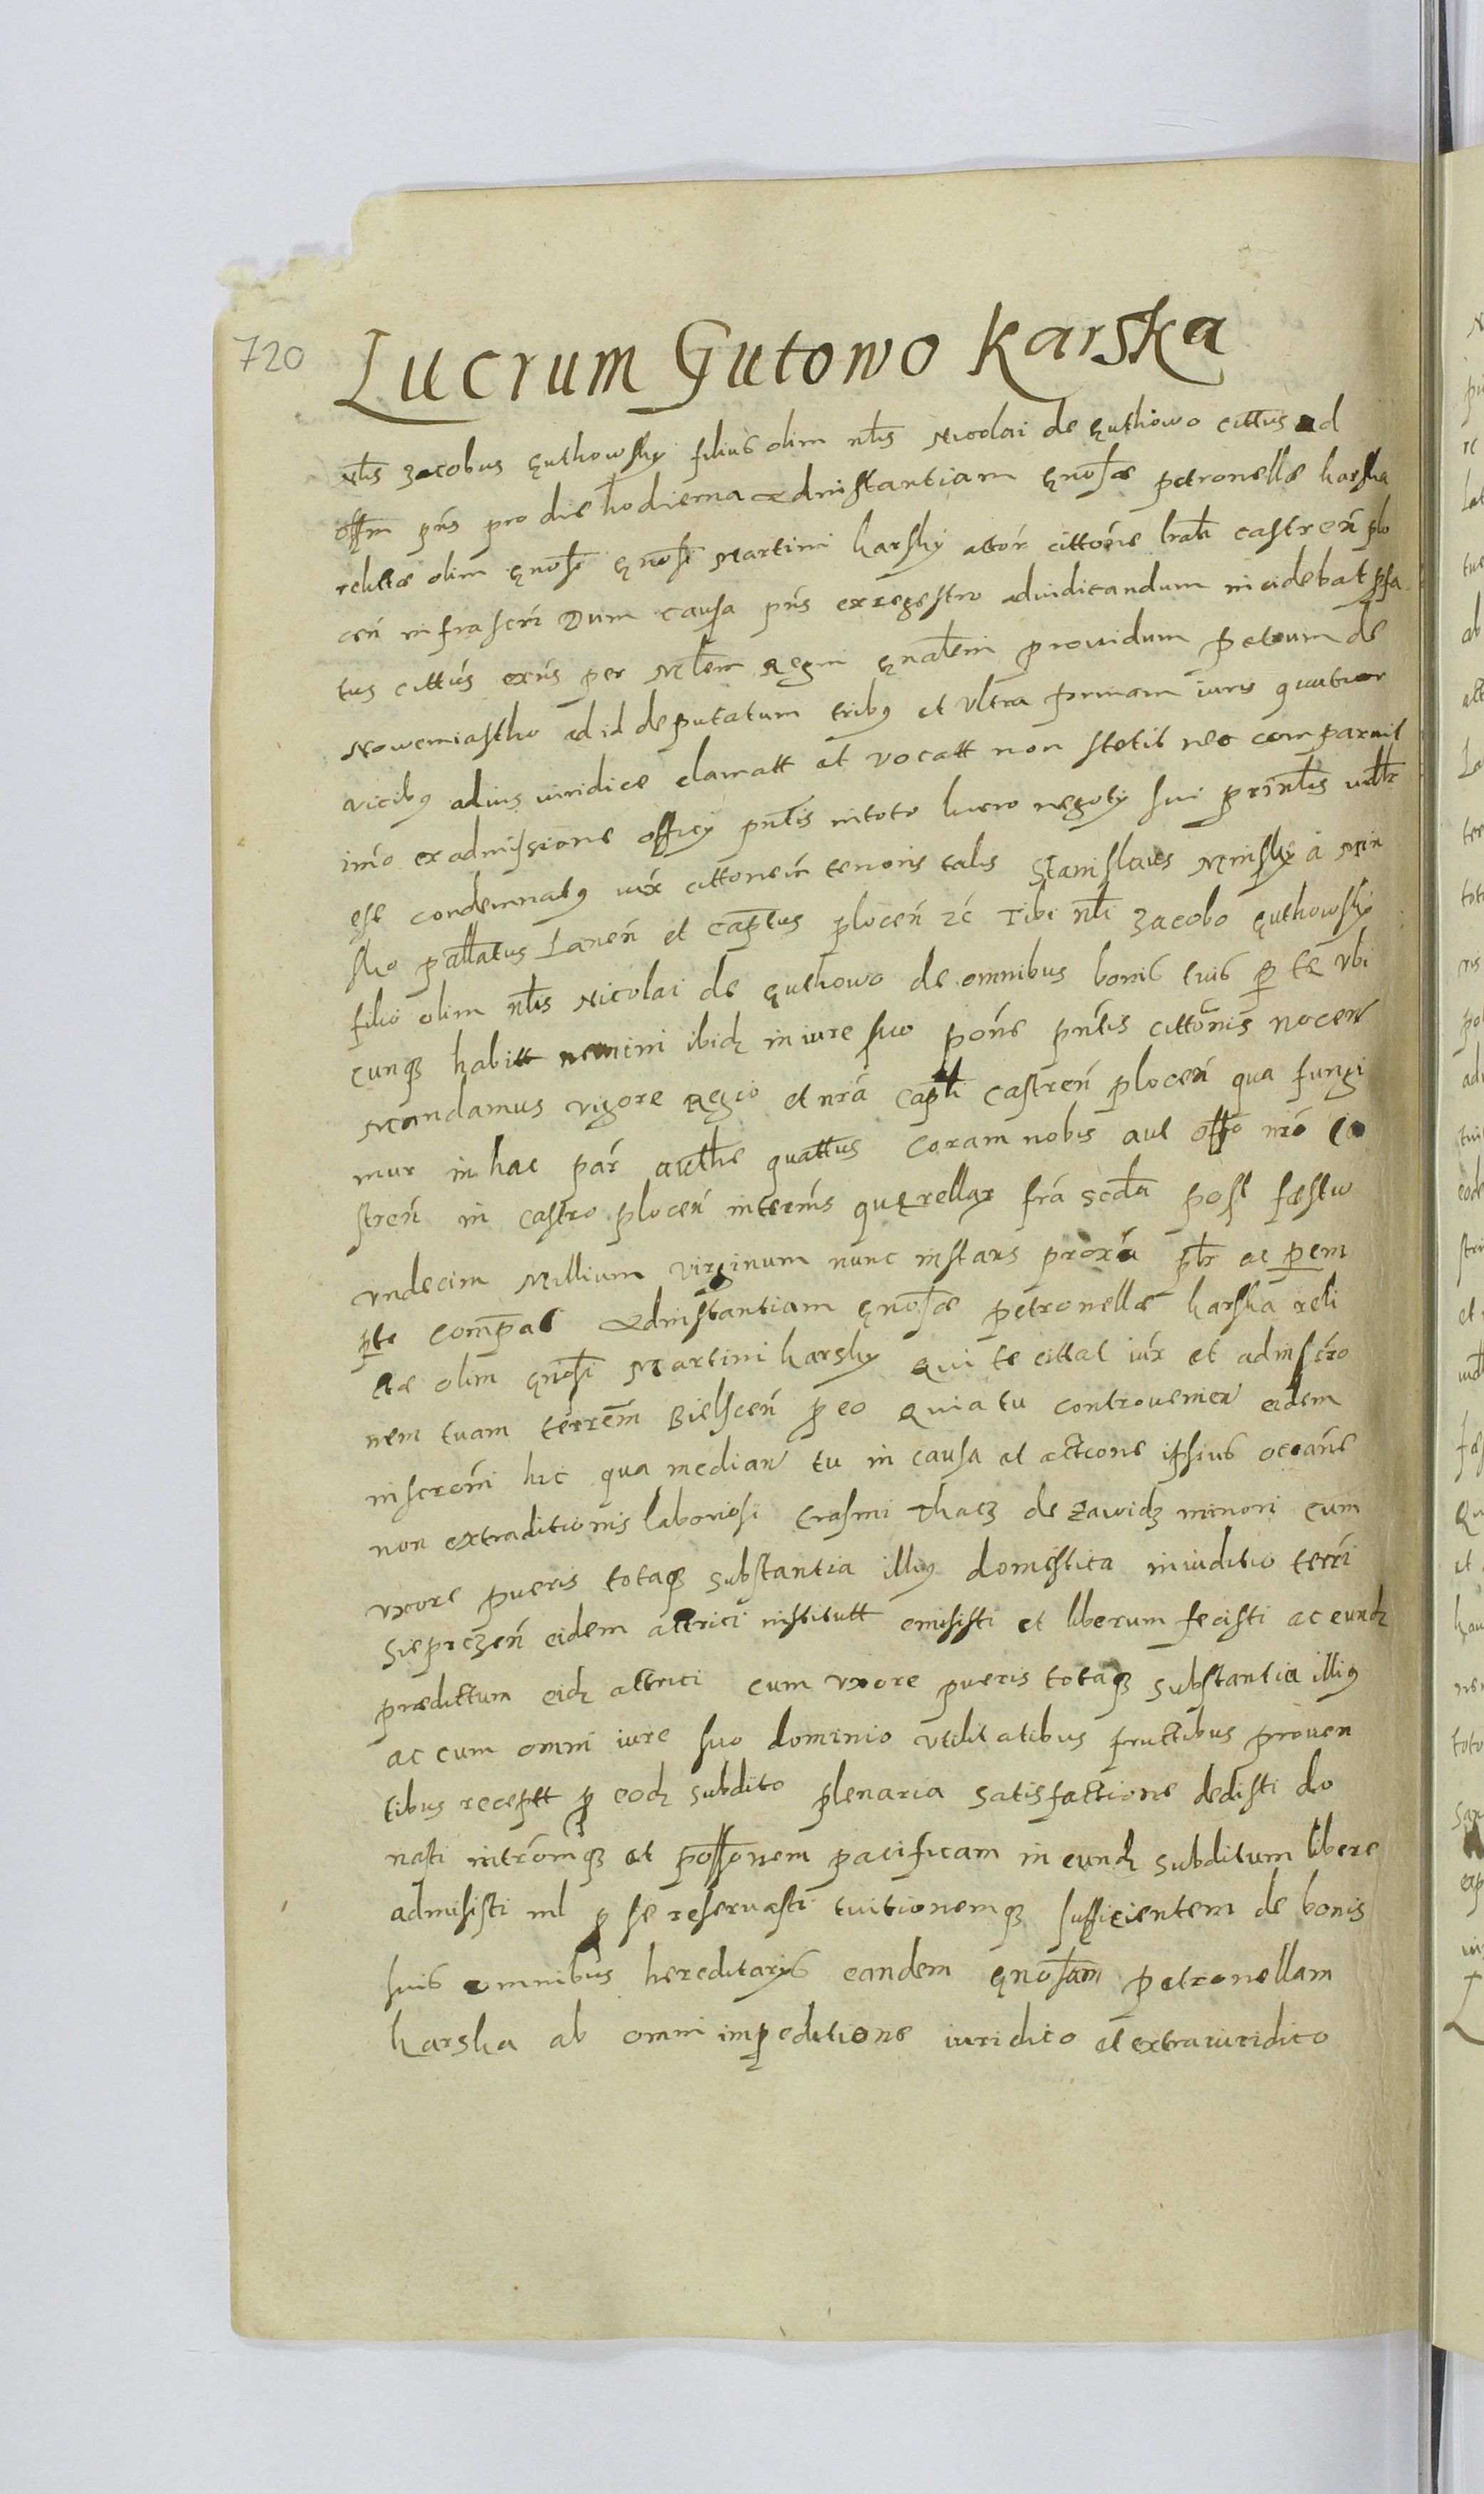 720
Lucrum Gutowo Karska
Nłis Jacobus Guthowsky filius olim nłis Nicolai de Guthowo cittus ad
offm pńs pro die hodierna ad instantiam Gnosæ Petronellæ Karska
relictæ olim Gnosi Gnosi Martini Karsky attoŕ cittońe lrali castreń plo
ceń infrascri Dum causa pńs ex regestro adiudicandum incidebat pfa
tus cittús exńs per Młem Regni Gnałem prouidum Petrum de
Nowemiastho ad id deputatum tribq et vltra primam iuris quatuor
vicibq ad ius iuridice clamatt et vocatt non stetit nec comparuit
imo ex admissione officÿ pntis in toto lucro negotÿ sui prinłis
est condemnatq iux cittonem tenoris talis Stanislaus Minsky a Min
sko pallatus Lanceń et capitus ploceń zć Tibi nłi Jacobo Guthowsky
filio olim nłis Nicolai de Guthowo de omnibus bonis tuis p te vbi
cunqz habitt nemini ibidz in iure suo pońe pńtis cittonis noceń
Mandamus vigore Regio et nra Capłi castreń ploceń qua fungi
mur in hac paŕ authe quattus coram nobis aut offo nro ca
streń in castro ploceń in termis querellar fra scda post festum
vndecim Millium virginum nunc instans proxa ptr ac pem
pte compas ad instantiam Gnosæ Petronellæ Karska reli
ctæ olim Gnosi Martini Karsky Qui te cittat iux et ad inscro
nem tuam terrem Bielsceń p eo Quia tu contraueniens eidem
inscroni hic qua mediań tu in causa et actione ipsius occańe
non extraditionis laboriosi Erasmi Thacz de Zawidz minori cum
vxore pueris totaqz substantia illiq domestica in iuditio terri
Sieprczeń eidem actrici institutt omisisti et liberum fecisti ac eundz
prædictum eidz actrici cum vxore pueris totaqz substantia illiq
ac cum omni iure suo dominio vtilitatibus fructibus prouen
tibus recepett p eodz subdito plenaria satisfactione dedisti do
nasti intromqz et possonem pacificam in eundz subditum libere
admisisti nil p se reseruasti tuitionemqz sufficientem de bonis
suis omnibus hereditarÿs eandem Gnosam Petronellam
Karska ab omni impeditione iuridico et extraiuridico